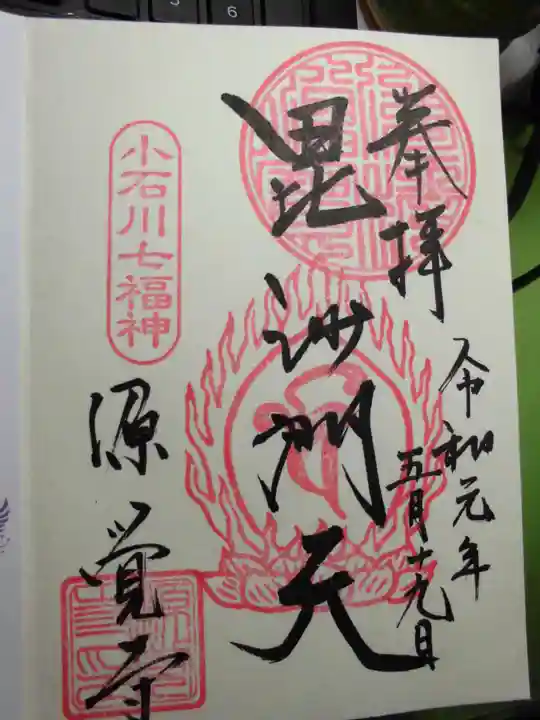 奉拝
令和元年
五月十九日
毘沙門天
小石川七福神
源覚寺
6